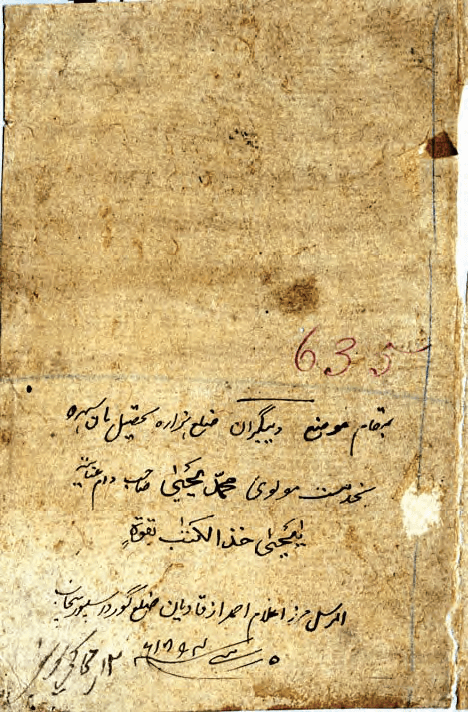 635
بمقام موضع دیبگراں ضلع ہزارہ تحصیل مانسہرہ
بخدمت مولوی محمد یحییٰ صاحب دام عنایتہ
یٰیحییٰ خذ الکتٰب بقوۃٍ
الرسل مرزا غلام احمد از قادیان ضلع گورداسپور پنجاب